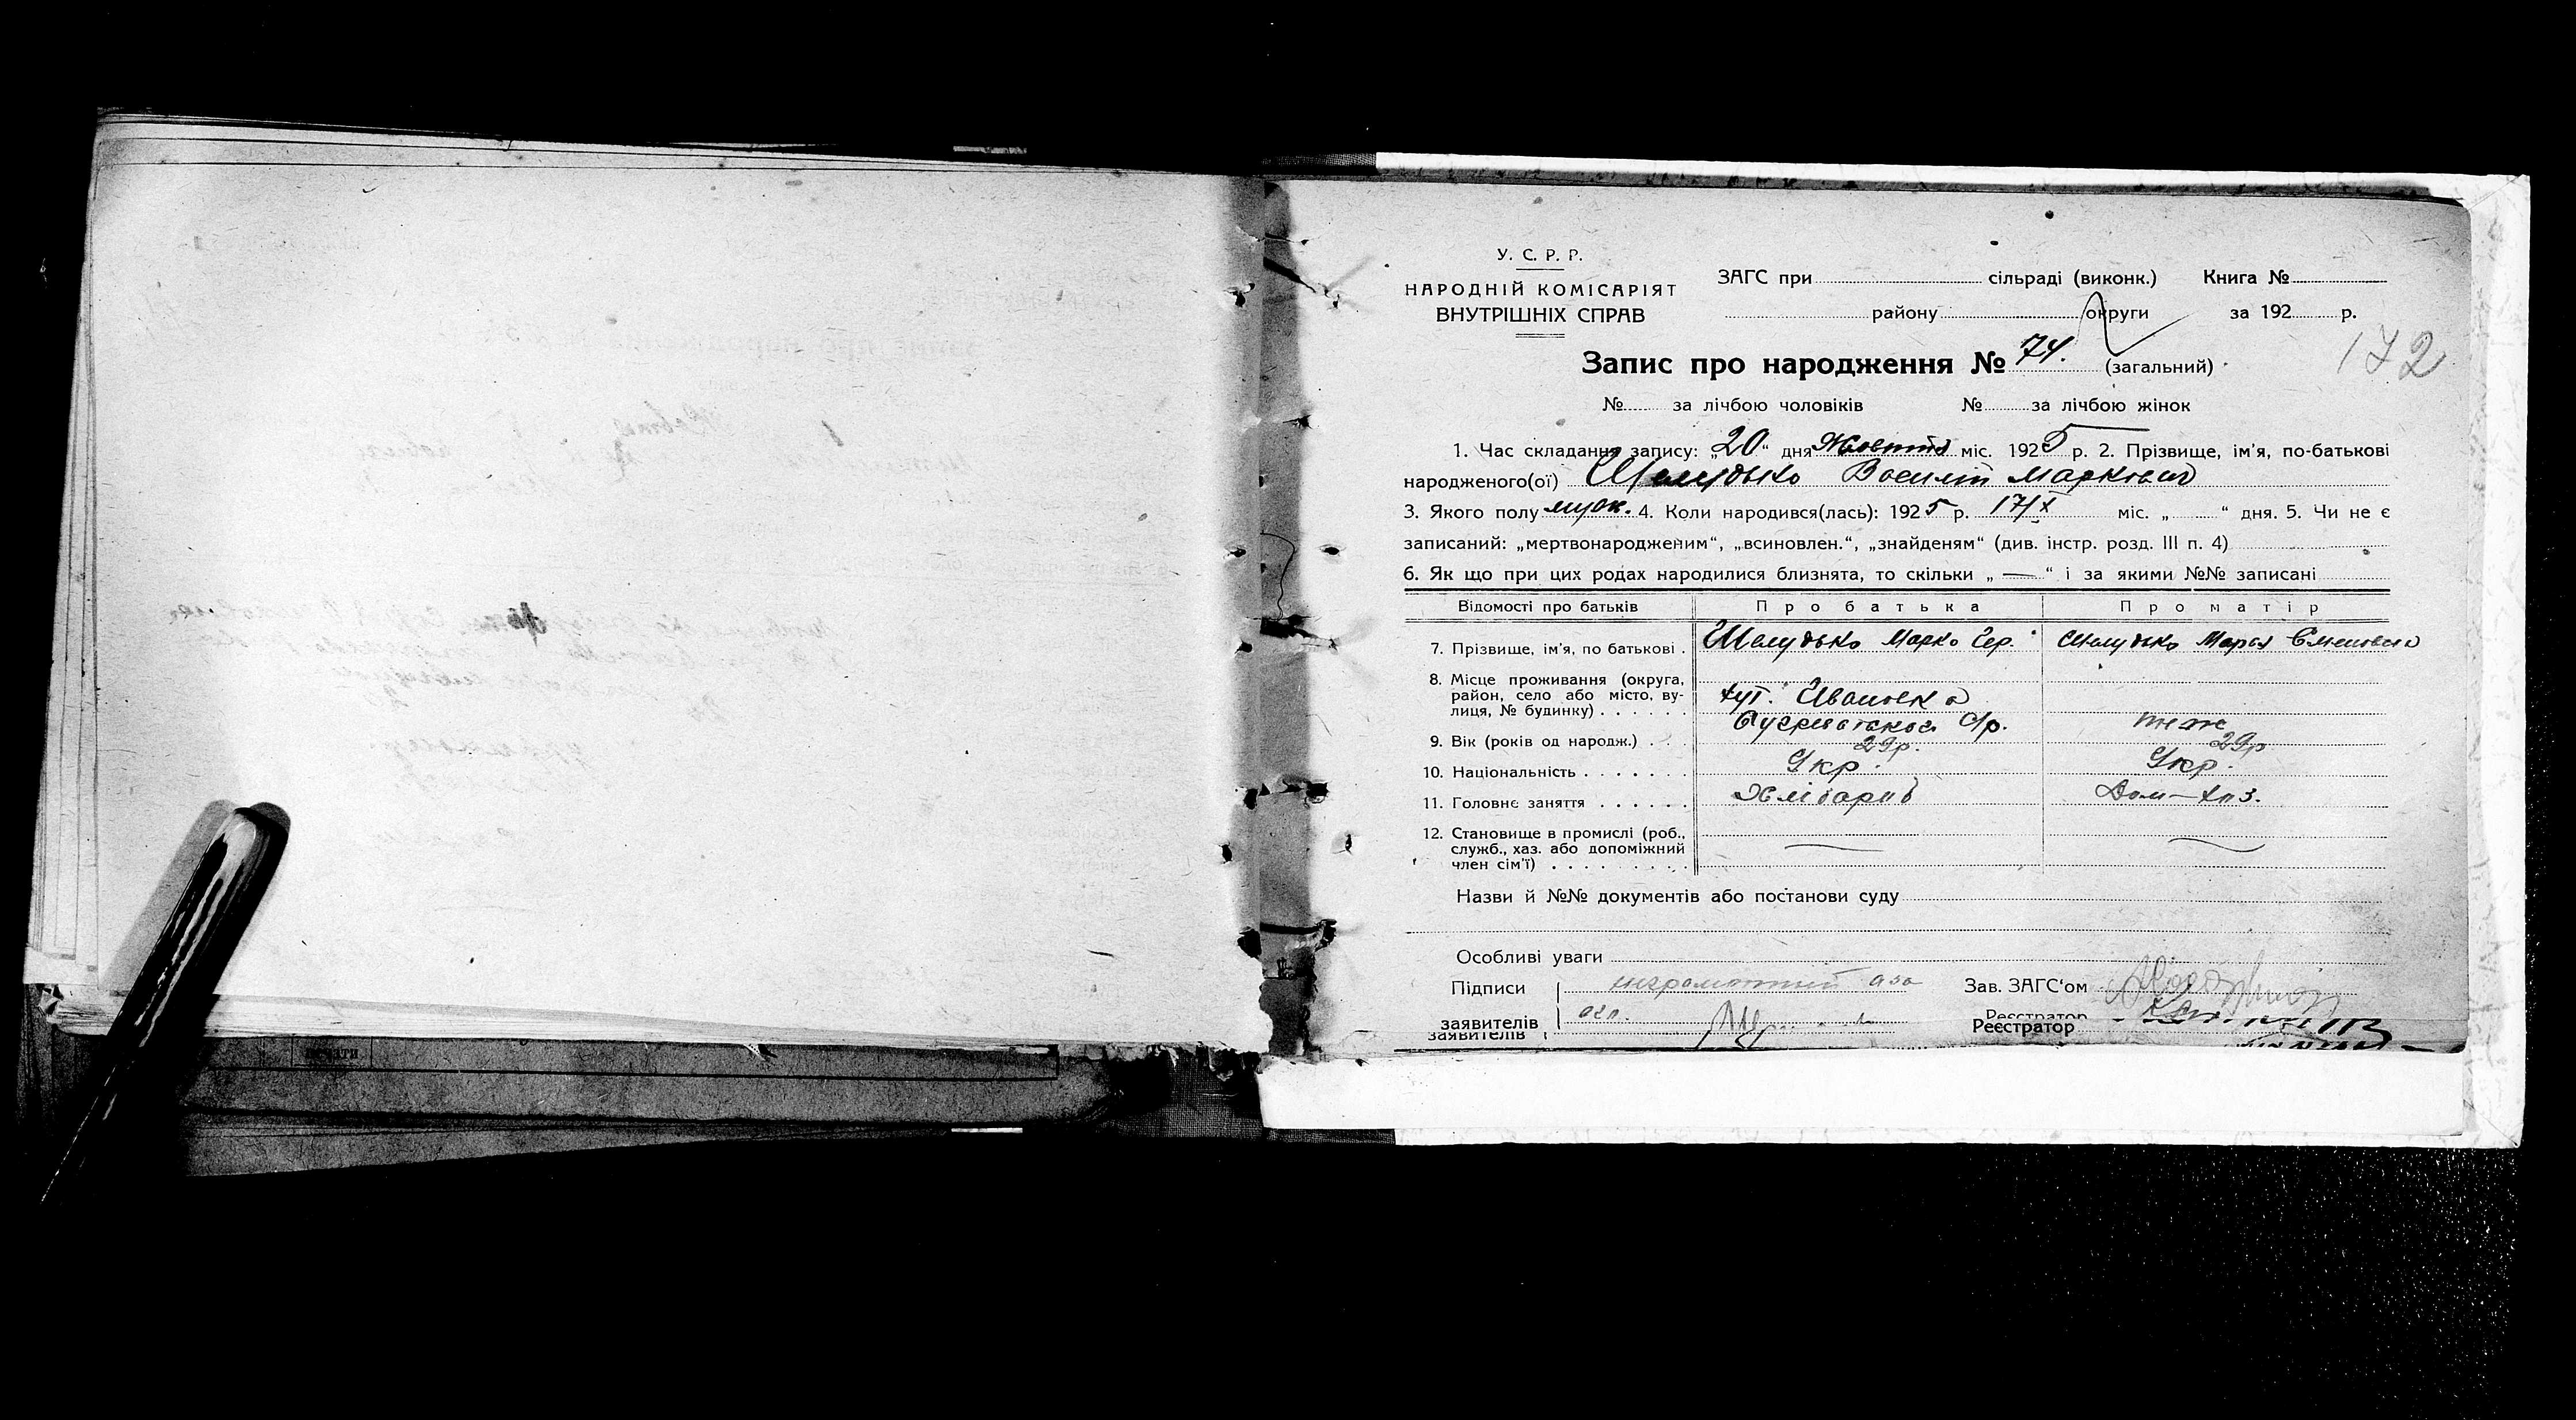 У. С. Р. Р.
НАРОДНІЙ КОМІСАРІЯТ
ВНУТРІШНІХ СПРАВ
ЗАГС при сільраді (виконк.) Книга №
району округи за 192 р.
172
Запис про народження № 74. (загальний)
№ за лічбою чоловіків № за лічбою жінок
1. Час складання запису: „20“ дня Жовтня міс. 1925 р. 2. Прізвище, ім'я, по-батькові
народженого(ої) Шелудько Василій Маркович
3. Якого полу муж. 4. Коли народився(лась): 1925 р. 17/X міс. „ “ дня. 5. Чи не є
записаний: „мертвонародженим“, „всиновлен.“, „знайденям“ (див. інстр. розд. III п. 4)
6. Як що при цих родах народилися близнята, то скільки „ — “ і за якими №№ записані
Відомості про батьків Про батька Про матір
7. Прізвище, ім'я, по батькові . Шелудько Марко Сер. Шелудько Мария
8. Місце проживання (округа,
район, село або місто, ву-
лиця, № будинку) . . . . . . хут. Ивановка
с/р. теж
9. Вік (років од народж.) . . . 29р. 29р
10. Національність . . . . . . . Укр. Укр.
11. Головне заняття . . . . . . Хлібороб Дом—хоз.
12. Становище в промислі (роб.,
служб., хаз. або допоміжний
член сім'ї) . . . . . . . . . — —
Назви й №№ документів або постанови суду
Особливі уваги
Підписи неграмотний Зав. ЗАГС'ом
заявителів Реєстратор
заявителів Реєстратор
печати